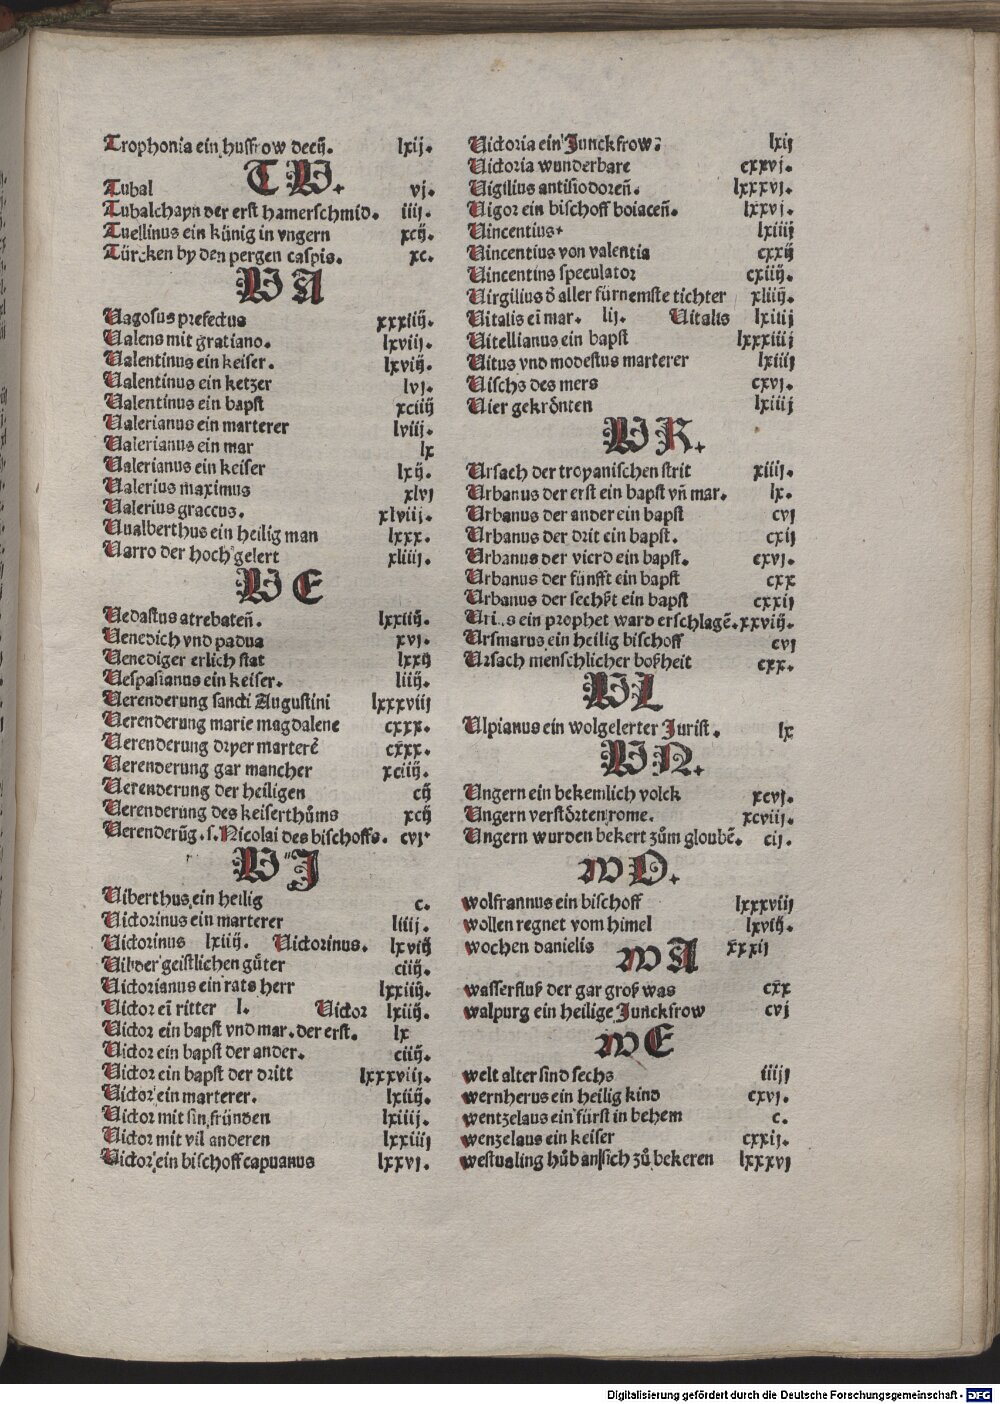 Trophonia ein husfrow decij. lxij.
T V.
Tubal vj.
Tubalchayn der erst hamerschmid. iiij.
Tuellinus ein künig in vngern xcij.
Türcken by den pergen caspis. xc.
V A
Vagosus prefectus xxxiiij.
Valens mit gratiano. lxvij.
Valentinus ein keiser. lxviij.
Valentinus ein ketzer lvj.
Valentinus ein bapst xciiij
Valerianus ein marterer lviij.
Valerianus ein mar lx
Valerianus ein keiser lxij.
Valerius maximus xlvj
Valerius graccus. xlviij.
Vualberthus ein heilig man lxxx.
Varro der hoch gelert xliiij.
V E
Vedastus atrebateñ. lxxiiij.
Venedich vnd padua xvj.
Venediger erlich stat lxxij
Vespasianus ein keiser. liiij.
Verenderung sancti Augustini lxxxviij
Verenderung marie magdalene cxxx.
Verenderung dryer marterẽ cxxx.
Verenderung gar mancher xciiij.
Verenderung der heiligen cij
Verenderung des keiserthůms xcij
Verenderũg .s. Nicolai des bischoffs. cvj
V J
Viberthus ein heilig c.
Victorinus ein marterer liiij.
Victorinus lxiiij. Victorinus. lxviij
Vil der geistlichen gůter ciiij.
Victorianus ein rats herr lxxiiij.
Victor eĩ ritter l. Victor lxiij.
Victor ein bapst vnd mar. der erst. lx
Victor ein bapst der ander. ciiij.
Victor ein bapst der dritt lxxxviij.
Victor ein marterer. lxiij.
Victor mit sin fründen lxiiij.
Victor mit vil anderen lxxiiij
Victor ein bischoff capuanus lxxvj.
Victoria ein Junckfrow. lxij
Victoria wunderbare cxxvj.
Vigilius antisiodoreñ. lxxxvj.
Vigor ein bischoff boiaceñ. lxxvj.
Vincentius lxiiij
Vincentius von valentia cxxij
Vincentins speculator cxiiij.
Virgilius d̉ aller fürnemste tichter xliiij.
Vitalis eĩ mar. lij. Vitalis lxiiij
Vitellianus ein bapst lxxxiiij
Vitus vnd modestus marterer lxiiij
Vischs des mers cxvj.
Vier gekrönten lxiiij
V R.
Vrsach der troyanischen strit xiiij.
Vrbanus der erst ein bapst vñ mar. lx.
Vrbanus der ander ein bapst cvj
Vrbanus der drit ein bapst. cxij
Vrbanus der vierd ein bapst. cxvj.
Vrbanus der fünfft ein bapst cxx
Vrbanus der sechßt ein bapst cxxij
ein prophet ward erschlagẽ. xxviij.
Vrsmarus ein heilig bischoff cvj
Vrsach menschlicher boßheit cxx.
V L
Vlpianus ein wolgelerter Jurist. lx
V N.
Vngern ein bekemlich volck xcvj.
Vngern verstörten rome. xcviij.
Vngern wurden bekert zům gloubẽ. cij.
w O.
wolfrannus ein bischoff lxxxviij
wollen regnet vom himel lxviij.
wochen danielis xxxij
w A
wasserfluß der gar groß was cxx
walpurg ein heilige Junckfrow cvj
w E
welt alter sind sechs iiij
wernherus ein heilig kind cxvj.
wentzelaus ein fürst in behem c.
wenzelaus ein keiser cxxij.
westualing hůb an sich zů bekeren lxxxvj
Digitalisierung gefördert durch die Deutsche Forschungsgemeinschaft - DFG